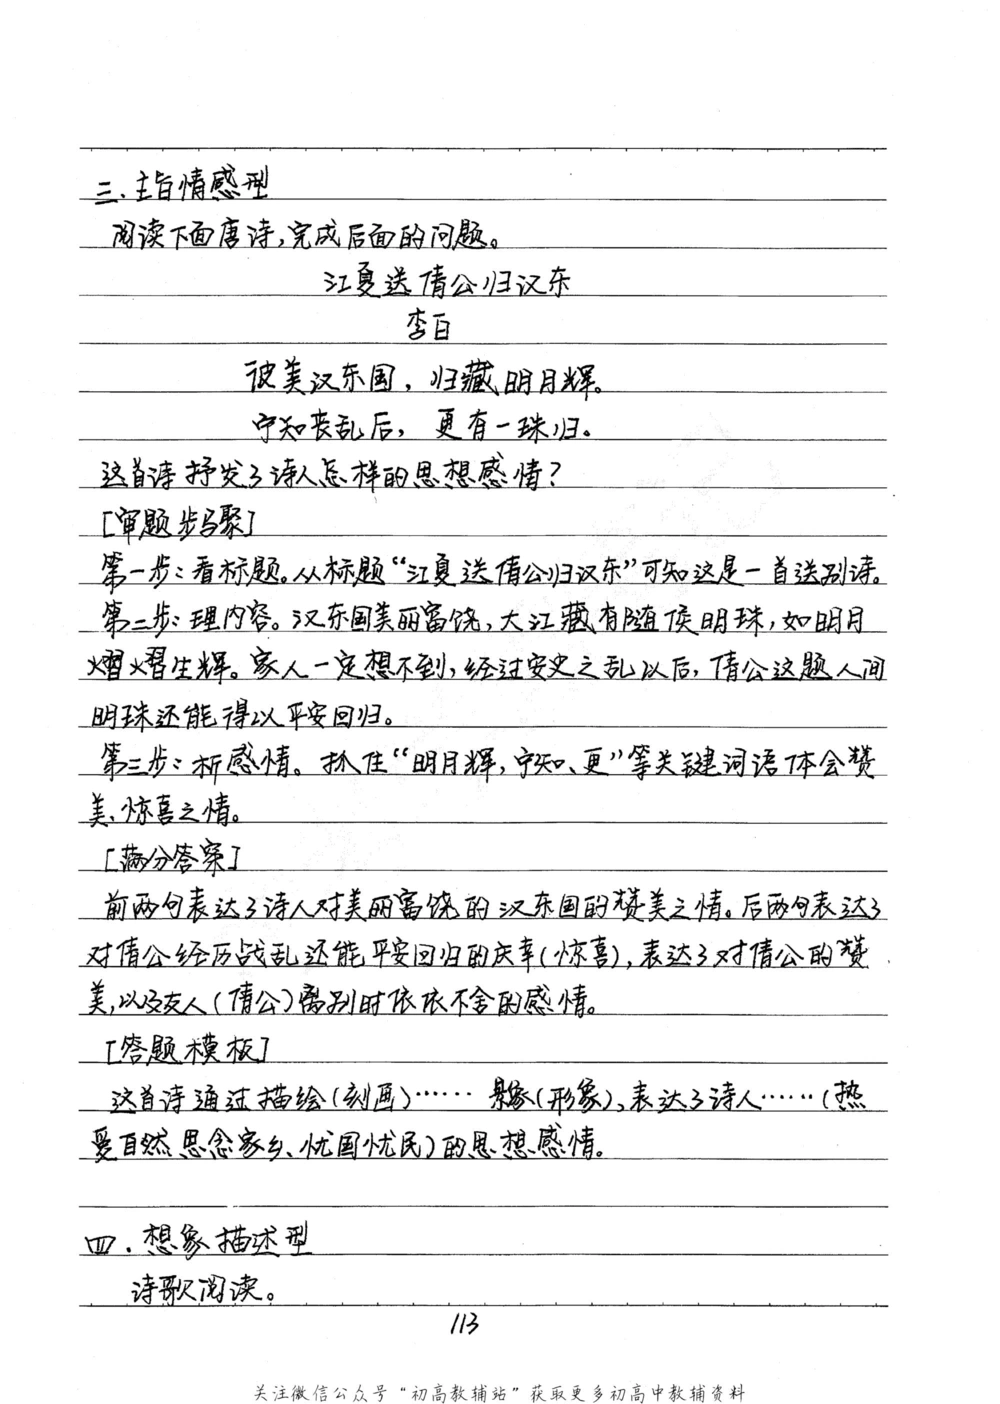 三.主旨情感型
阅读下面唐诗,完成后面的问题。
江夏送倩公归汉东
李白
彼美汉东国，归藏明月辉。
宁知丧乱后，更有一珠归。
这首诗抒发了诗人怎样的思想感情？
[审题步骤]
第一步:看标题。从标题“江夏送倩公归汉东”可知这是一首送别诗。
第二步:理内容。汉东国美丽富饶,大江藏有随侯明珠,如明月
熠熠生辉。家人一定想不到,经过安史之乱以后,倩公这题人间
明珠还能得以平安回归。
第三步:析感情。抓住“明月辉,宁知、更”等关键词语体会赞
美、惊喜之情。
[满分答案]
前两句表达了诗人对美丽富饶的汉东国的赞美之情。后两句表达了
对倩公经历战乱还能平安回归的庆幸(惊喜),表达了对倩公的赞
美,以及友人(倩公)离别时依依不舍的感情。
[答题模板]
这首诗通过描绘(刻画)…… 景象(形象),表达了诗人……(热
爱自然、思念家乡、忧国忧民)的思想感情。
四.想象描述型
诗歌阅读。
113
关注微信公众号“初高教辅站”获取更多初高中教辅资料